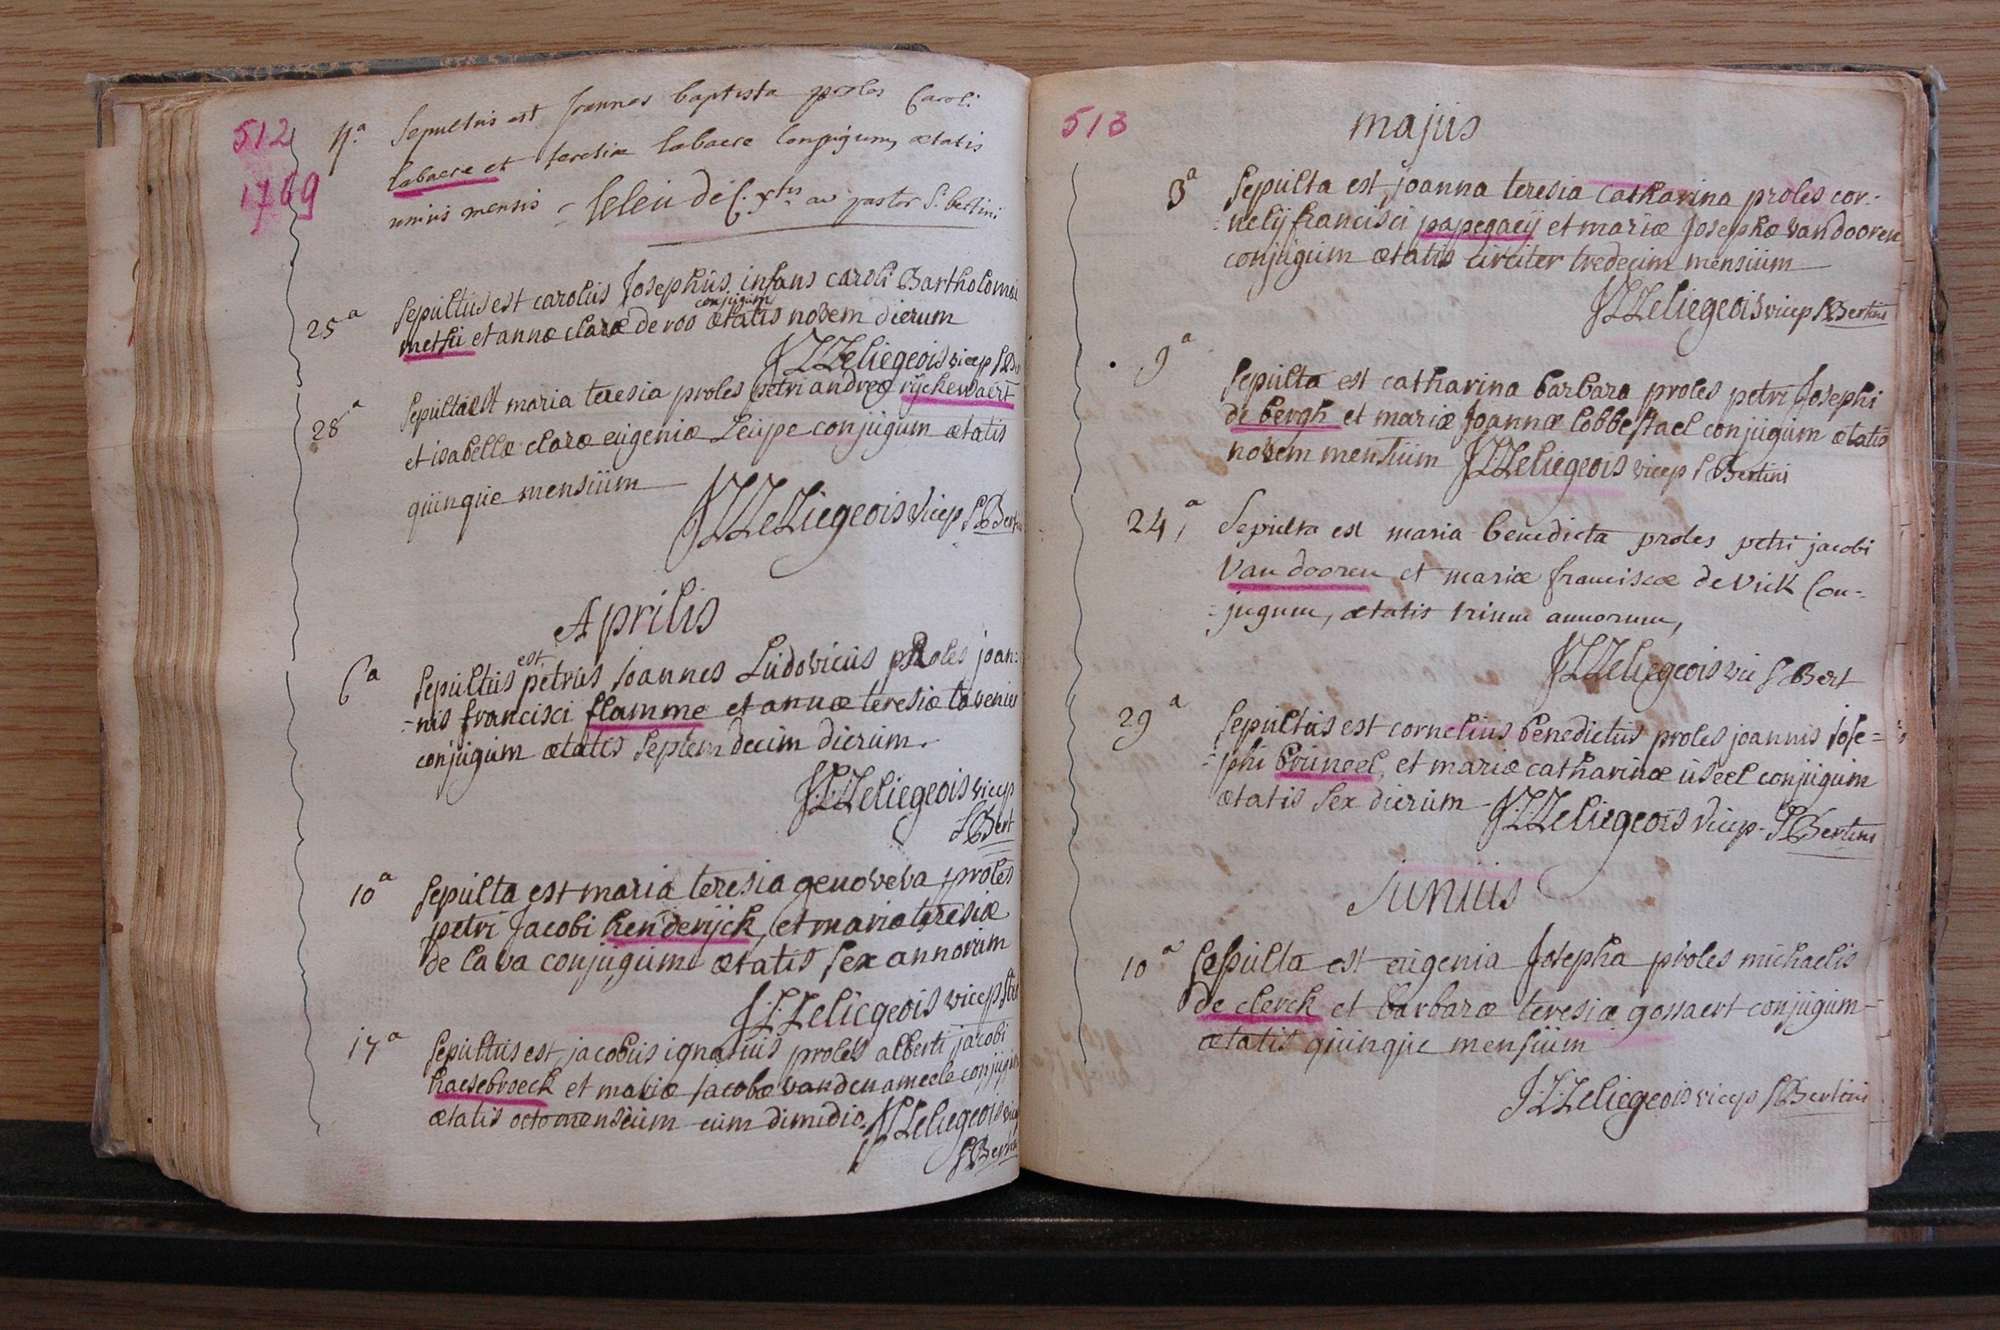 512
1769
Sepultus est Joannes baptista proles Caroli
labaere et teresiæ labaere Conjugum ætatis
unius mensis
pastor S. bertini
25a Sepultus est carolus Josephus infans caroli Bartholomæi
conjugum
metsu et annæ claræ de voo ætatis novem dierum
JLLeliegeois vicep SB
28a Sepulta est maria teresia proles petri andreæ ryckewaert
et isabellæ claræ eugeniæ Leupe conjugum ætatis
quinque mensium
JLLeLiegeois Vicep SBert
Aprilis
est
6a Sepultus petrus Joannes Ludovicus proles joan:
=nis francisci flamme et annæ teresiæ tavenier
conjugum ætatis Septem decim dierum.
J:L:Leliegeois vicep
SBert
10a Sepulta est maria teresia genoveva proles
petri Jacobi henderijck, et maria teresiæ
de lava conjugum ætatis sex annorum
J:L:Leliegeois vicep
17a Sepultus est, jacobus ignatius proles alberti jacobi
haesebroeck et mariæ jacobæ vanden ameele conjugum
ætatis octo mensium cum dimidio. JLLeliegeois
SBert
513
majus
3a Sepulta est, joanna teresia catharina proles cor:
=nelij francisci papegaeij et mariæ Josephæ van dooren
conjugum ætatis circiter tredecim mensium
JLLeliegeois vicep SBertini
9a Sepulta est catharina barbara proles petri Josephi
de bergh et mariæ Joannæ lobbestael conjugum ætatis
novem mensium JLLeliegeois vicep SBertini
24a, Sepulta est maria benedicta proles petri jacobi
Van dooren et mariæ franciscæ de Vick Con=
=jugum, ætatis trium annorum,
JLLeliegeois vic SBert
29a Sepultus est cornelius benedictus proles joannis jose=
=phi bruneel, et mariæ catharinæ useel conjugum
ætatis sex dierum JLLeliegeois vicep. SBertini
Junius
10a Sepulta est eugenia Josepha proles michaelis
de clerck et barbaræ teresiæ gossaert conjugum
ætatis quinque mensium
J:L:Leliegeois vicep SBertini